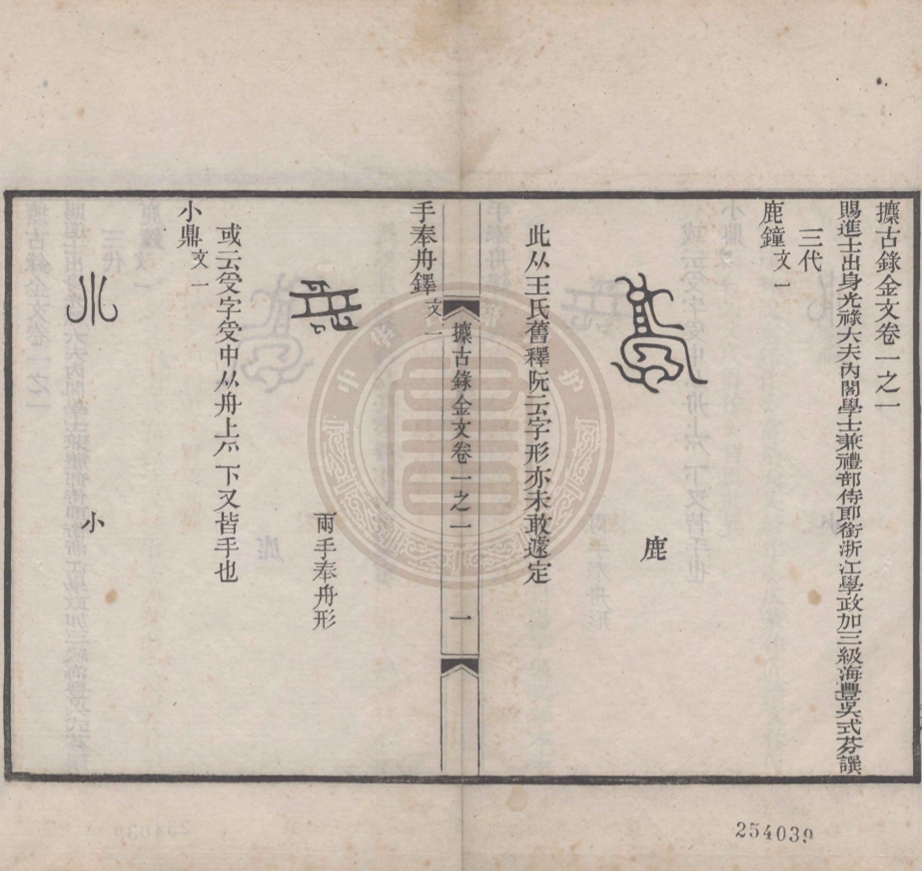 攈古錄金文卷一之一
賜進士出身光祿大夫內閣學士兼禮部侍郎銜浙江學政加三級海豐吳式芬譔
三代
鹿鐘 文一
鹿
此从王氏舊釋阮云字形亦未敢遽定
攈古錄金文卷一之一
一
手奉舟鐸 文一
兩手奉舟形
或云受字受中从舟上爫下又皆手也
小鼎 文一
小
254039